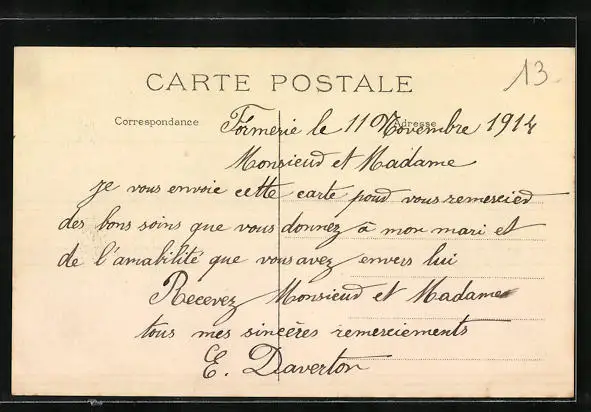 CARTE POSTALE
13
Correspondance
Adresse
Formerie le 11 Novembre 1914
Monsieur et Madame
je vous envoie cette carte pour vous remercier
des bons soins que vous donnez à mon mari et
de l'amabilité que vous avez envers lui
Recevez Monsieur et Madame
tous mes sincères remerciements
E. Daverton